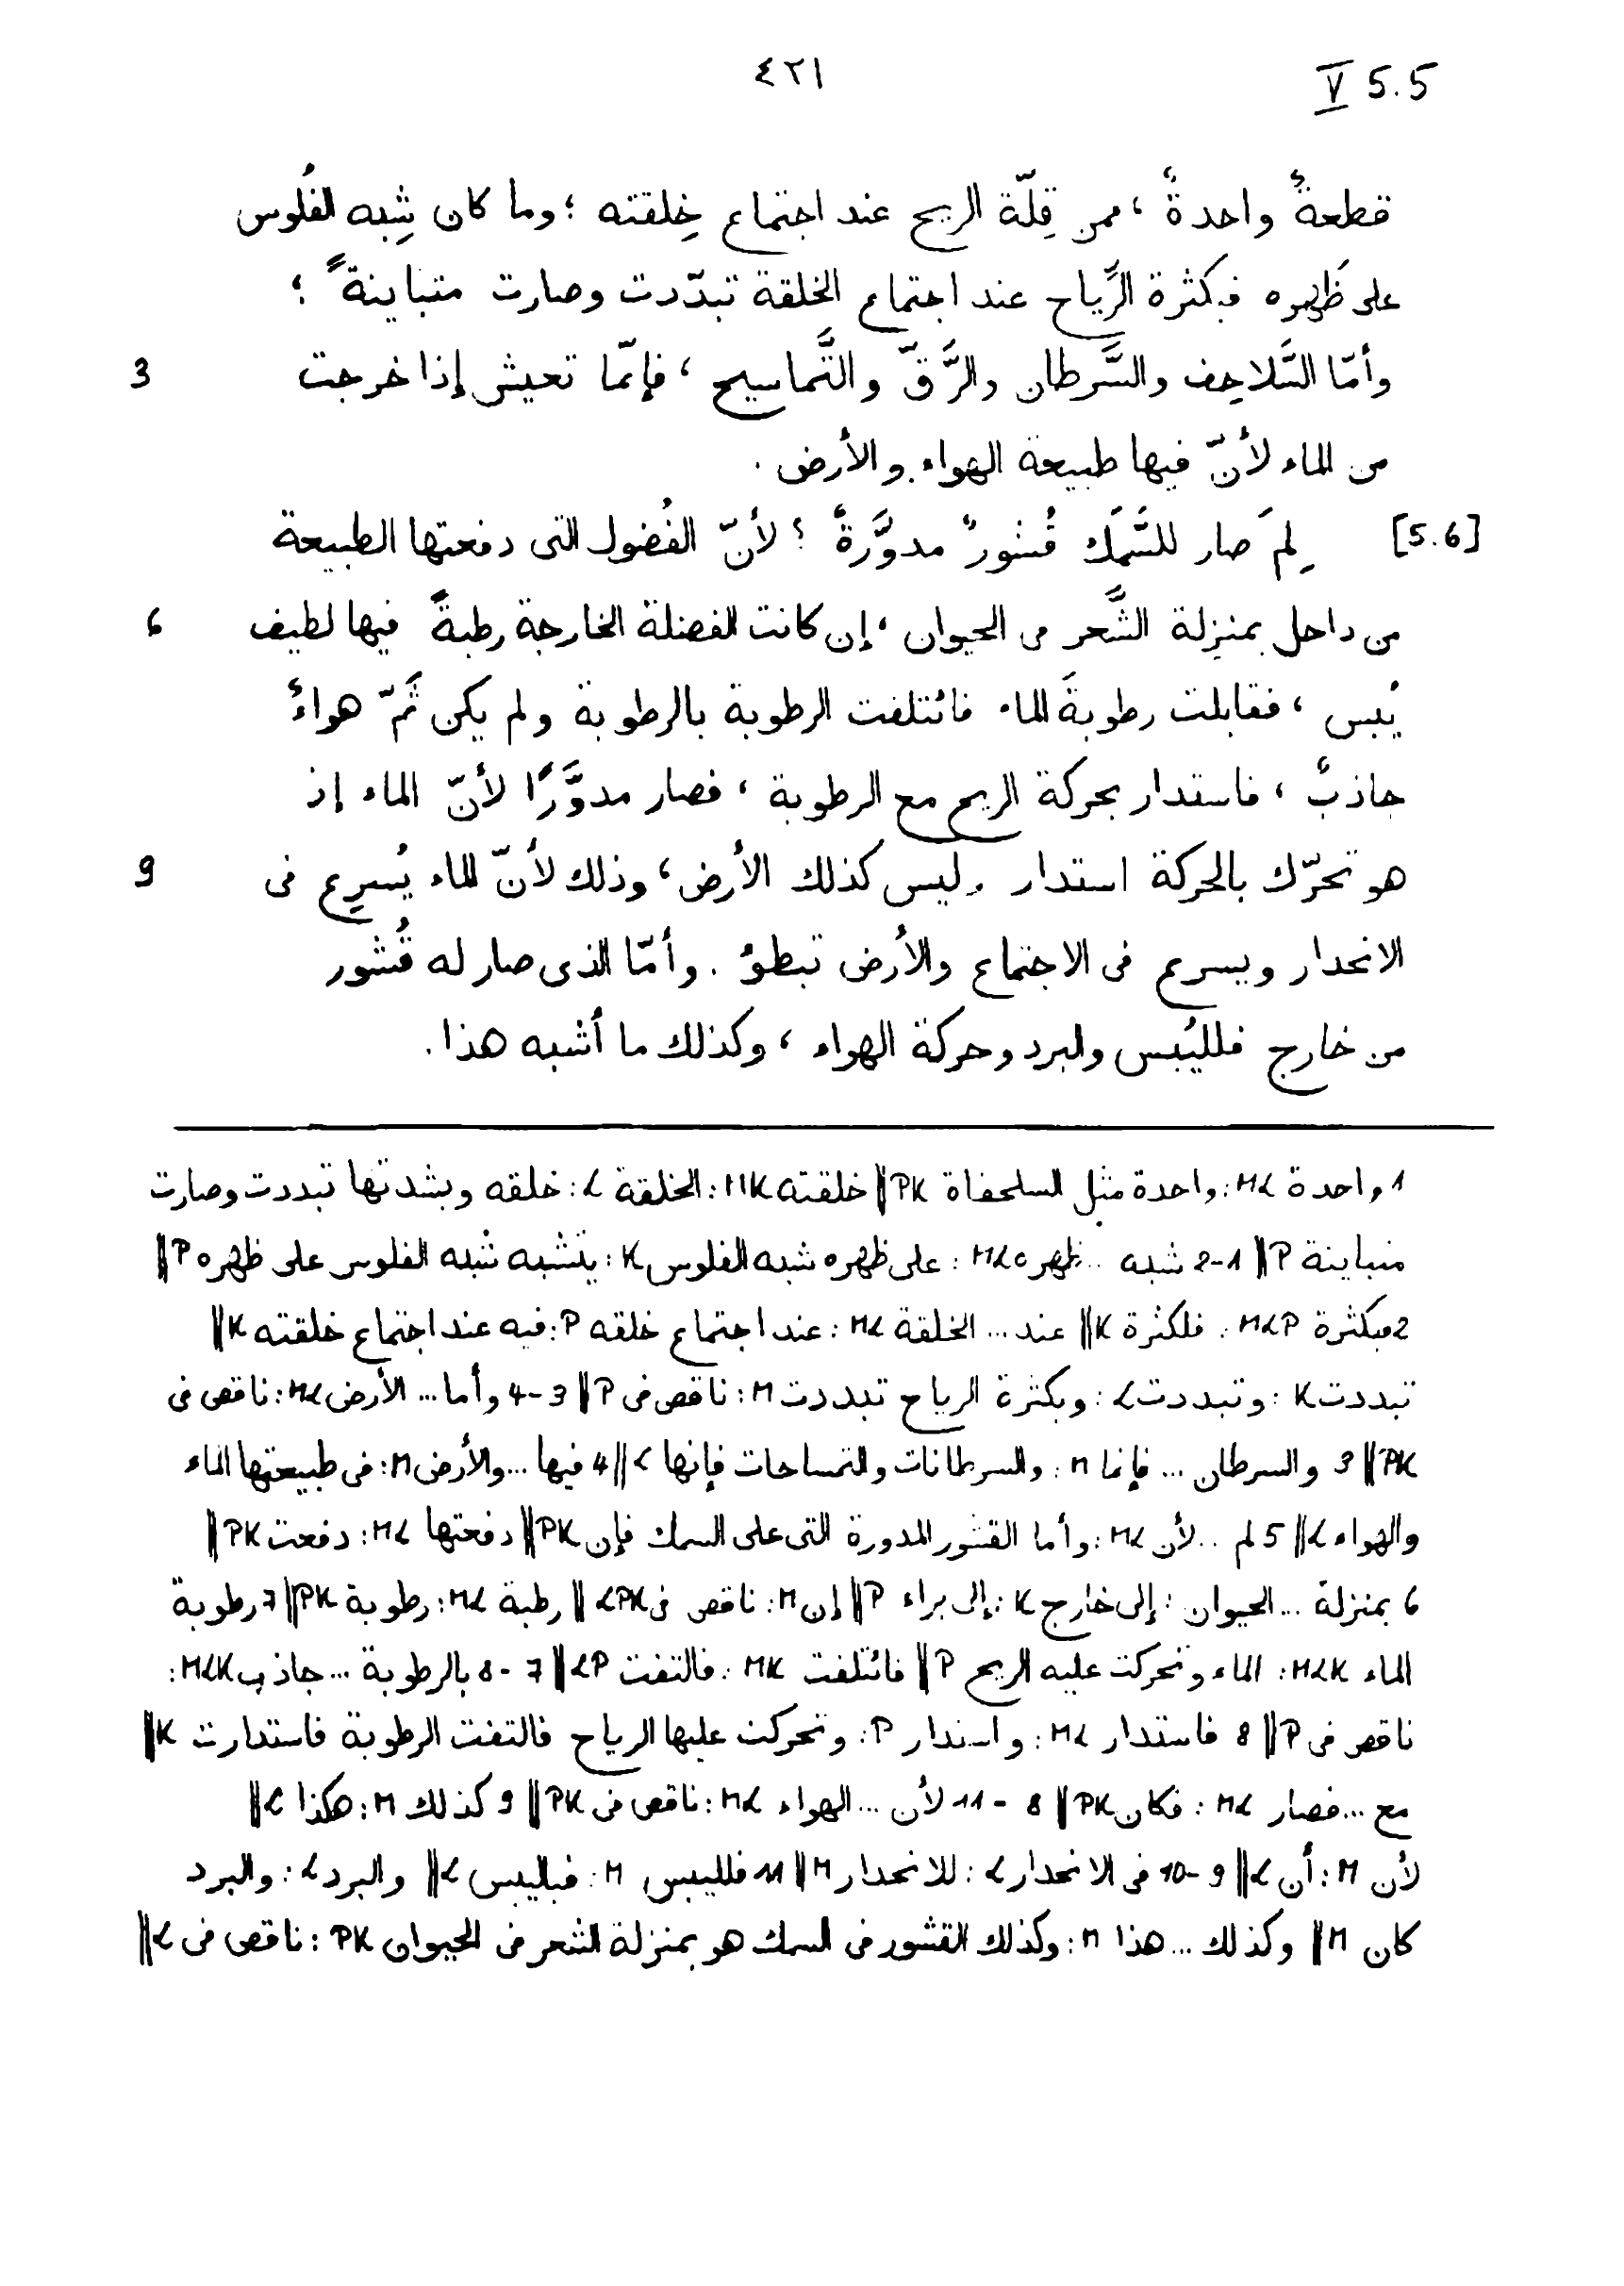 ٤٢١
V 5.5
قطعةٌ واحدةٌ ، فمن قِلّة الريح عند اجتماع خِلقته ؛ وما كان شِبه الفُلوس
على ظَهره فبكثرة الرِّياح عند اجتماع الخلقة تبدّدت وصارت متباينةً ؛
3 وأمّا السَّلاحِف والسَّرطان والرَّقّ والتَّماسيح ، فإنّما تعيش إذا خرجت
من الماء لأنّ فيها طبيعة الهواء والأرض .
[5.6] لِمَ صار للسَّمَك قُشورٌ مدوَّرةٌ ؟ لأنّ الفُضول التى دفعتها الطبيعة
6 من داخل بمنزلة الشَّعر من الحيوان ، إن كانت الفضلة الخارجة رطبةً فيها لطيف
يُبس ، فقابلت رطوبةَ الماء فائتلفت الرطوبة بالرطوبة ولم يكن ثَمّ هواءٌ
جاذبٌ ، فاستدار بحركة الريح مع الرطوبة ، فصار مدوَّرًا لأنّ الماء إذ
9 هو تحرّك بالحركة استدار وليس كذلك الأرض ، وذلك لأنّ الماء يُسرِع فى
الانحدار ويسرع فى الاجتماع والأرض تبطؤ . وأمّا الذى صار له قُشور
من خارج فلليُبس والبرد وحركة الهواء ، وكذلك ما أشبه هذا .
1 واحدة ML : واحدة مثل السلحفاة PK || خلقته MK : الخلقة L : خلقه وبشدتها تبددت وصارت
متباينة P || 1-2 شبه ... ظهره ML : على ظهره شبه الفلوس K : يتشبه شبه الفلوس على ظهره P ||
2 فبكثرة MLP : فلكثرة K || عند ... الخلقة ML : عند اجتماع خلقه P : فيه عند اجتماع خلقته K ||
تبددت K : وتبددت L : وبكثرة الرياح تبددت M : ناقص فى P || 3-4 وأما ... الأرض ML : ناقص فى
PK || 3 والسرطان ... فإنما M : والسرطانات والتمساحات فإنها L || 4 فيها ... والأرض M : فى طبيعتها الماء
والهواء L || 5 لم ... لأن ML : وأما القشور المدورة التى على السمك فإن PK || دفعتها ML : دفعت PK ||
6 بمنزلة ... الحيوان : إلى خارج K : إلى براء P || إن M : ناقص فى LPK || رطبة ML : رطوبة PK || 7 رطوبة
الماء MLK : الماء وتحركت عليه الريح P || فائتلفت MK : فالتفت LP || 7-8 بالرطوبة ... جاذب MLK :
ناقص فى P || 8 فاستدار ML : واستدار P : وتحركت عليها الرياح فالتفت الرطوبة فاستدارت K ||
مع ... فصار ML : فكان PK || 8-11 لأن ... الهواء ML : ناقص فى PK || 9 كذلك M : هكذا L ||
لأن M : أن L || 9-10 فى الانحدار L : للانحدار M || 11 فلليبس M : فباليبس L || والبرد L : والبرد
كان M || وكذلك ... هذا M : وكذلك القشور فى السمك هو بمنزلة الشعر فى الحيوان PK : ناقص فى L ||